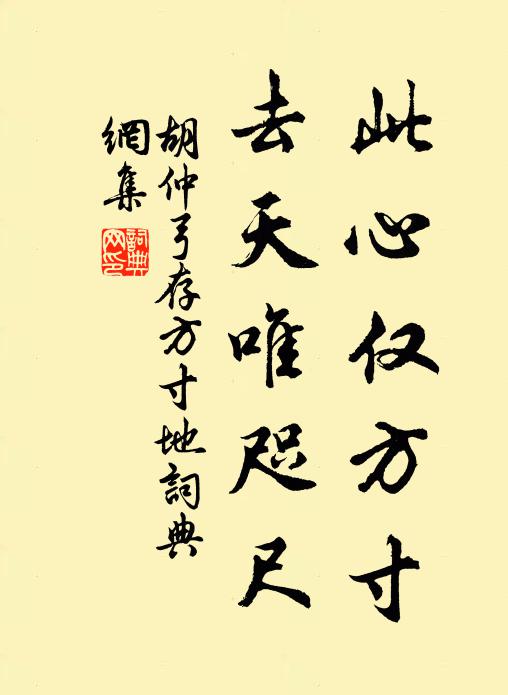 此心仅方寸
去天唯咫尺
胡仲弓存方寸地詞典
網集
詞典
网印